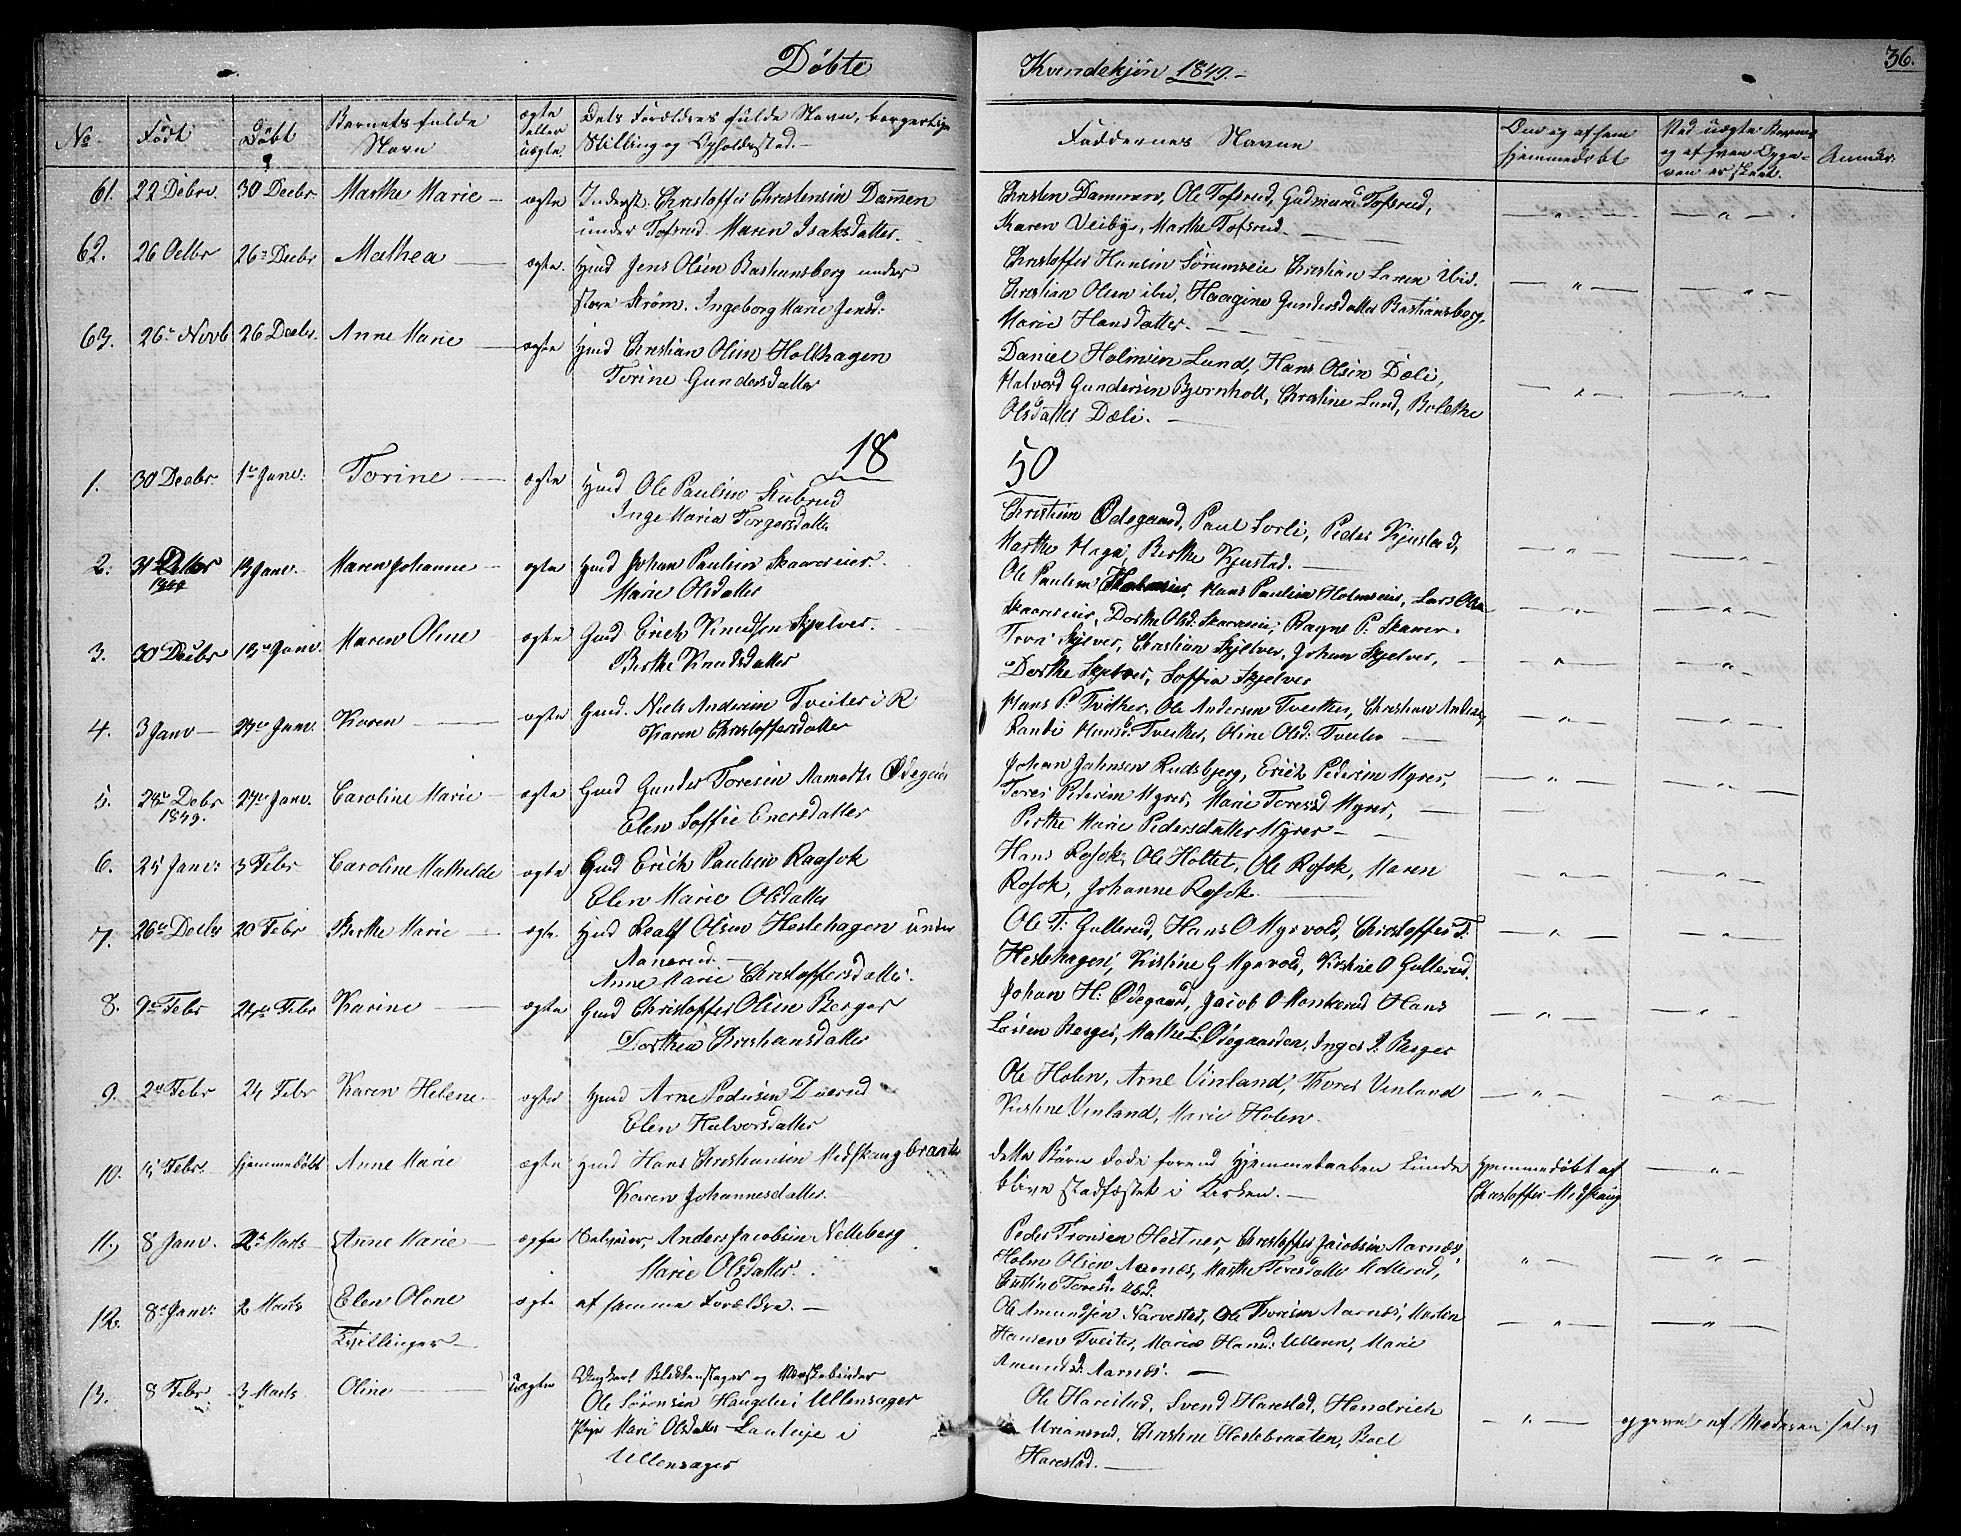 Döbte
Kvindekjön 1849.-
36.
No
Födt
Döbt
Barnets fulde
Navn
ægte
eller
uægte.
Dets Forældres fulde Navn, borgerlige
Stilling og Opholdssted.-
Faddernes Navne
Om og af hvem
hjemmedöbt
Ved uægte
og af hvem
Anmkr.
61. 22 Debrs 30 Decbr. Marthe Marie - ægte Inderst. Christoffer Christensen Dammen
under Tofsrud Maren Isaksdatter.
Christen Dammen, Ole Tofsrud, Gudmund Tofsrud,
Karen Veibye, Marthe Tofsrud.
62. 26 26 Decbr Mathea ægte. Hmd Jens Olsen Bastiansberg under
Ström. Ingeborg Marie Jensd:
Christoffer Hansen Sörumseie Christian Larsen Ibid.
Christian Olsen ibid, Haagine Gundersdatter Bastiansberg,
Marie Hansdatter.
63. 26 Novb 26 Decbr. Anne Marie ægte Hmd Christian Olsen Holthagen
Torine Gundersdatter
Daniel Holmsen Lund, Hans Olsen Dæli,
Halvord Gundersen Bjørnholt, Christine Lund, Bolethe
Olsdatter Dæli.
18
50
1. 30 Decbr. 1 Janv: Torine ægte Hmd Ole Paulsen Stubrud
Inge Maria Torgersdatter
Christian Ödegaard, Paul Sorli, Peder Kjustad,
Marthe Haga, Berthe Kjustad.
2. 31 1849 13 Janv. Maren Johanne ægte Hmd Johan Paulsen Skaarerseier.
Marie Olsdatter
Ole Paulsen Holmseier, Hans Paulsen Holmseier, Lars Olsen
Dorthe Olsd:
3. 30 Decbr 13 Janv. Maren Oline ægte Gmd Erich Knudsen Skjelver.
Berthe Knudsdatter
Skjelver, Christian Skjelver, Johan Skjelver,
Dorthe Skjelver, Soffia Skjelver
4. 3 Janv Janv. Karen ægte Gmd. Niels Andersen Tveiter i R
Karen Christoffersdatter
Hans P. Tveiter, Ole Andersen Tveiter, Christian Anders.
Randi Hansd: Tveiter, Oline Olsd: Tveiter
5. Debr 1849. 27 Janv. Caroline Marie ægte Gmd Gunder Toresen Aamodt
Elen Soffie
Johan Johnsen Rudsbjerg, Erich Pedersen Myrer,
Tores Pedersen Myrer, Marie Toresd Myrer,
Berthe Marie Pedersdatter Myrer
6. 25 Janv: 3 Febr Caroline Mathilde ægte Gmd Erich Paulsen Raasok
Elen Marie Olsdatter
Hans Rosok, Ole Holtet, Ole Rosok, Maren
Rosok, Johanne Rosok
7. 26 Decbr 20 Febr Berthe Marie ægte. Hmd Olsen Hestehagen under
Aanerud.
Anne Marie Christoffersdatter.
Ole T: Gullerud, Hans O Myrvold, Christoffer T.
Hestehagen, Kirstine G Myrvold, Kirstine O Gullerud.
8. 9 Febr 24 Febr Karine ægte Gmd Christoffer Olsen Berger
Dorthea Christiansdatter
Johan H: Ödegaard, Jacob O Monkerud Hans
Larsen Berger, Mathe L. Ödegaarden, Inger P. Berger
9. 2 Febr 24 Febr Karen Helene ægte Hmd Arne Pedersen Duerud
Elen Halvorsdatter
Ole Holen, Arne Vinland, Thores Vinland
Kirstine Vinland, Marie Holen.
10. 15 Febr. hjemmedöbt Anne Marie ægte Hmd Hans Christiansen Midskaugbraate
Karen Johannesdatter.
dette Barn döde forend Hjemmedaaben kunde
blive stadfæstet i Kirken.
Hjemmedöbt af
Christoffer Midskaug
11. 8 Janv. 2 Marts Anne Marie ægte Anders Jacobsen Nelleberg
Marie Olsdatter.
Peder Tronsen Hestner, Christoffer Jacobsen Aarnæs,
Holm Olsen Aarnæs, Marthe Toresdatter Mollerud,
Christine Toresd: ibid.
12. 8 Janv: 2 Marts Elen Olone ægte af samme Forældre.
Tvillinger
Ole Amundsen Narvestad, Ole Thoresen Aarnæs, Morten
Hansen Tveiter, Maria Hansd: Ulleren, Marie
Amundsd: Aarnæs.
13. 8 Febr 3 Marts Oline Uægte Ungkarl Blikkenslager og
Ole Sörensen Haugelie i Ullensager
Pige Mari Olsdatter i
Ullensager
Ole Harestad, Svend Harestad, Hendrich
Christine Hestebraaten, Boel
Harestad.
opgivet af Moderen selv